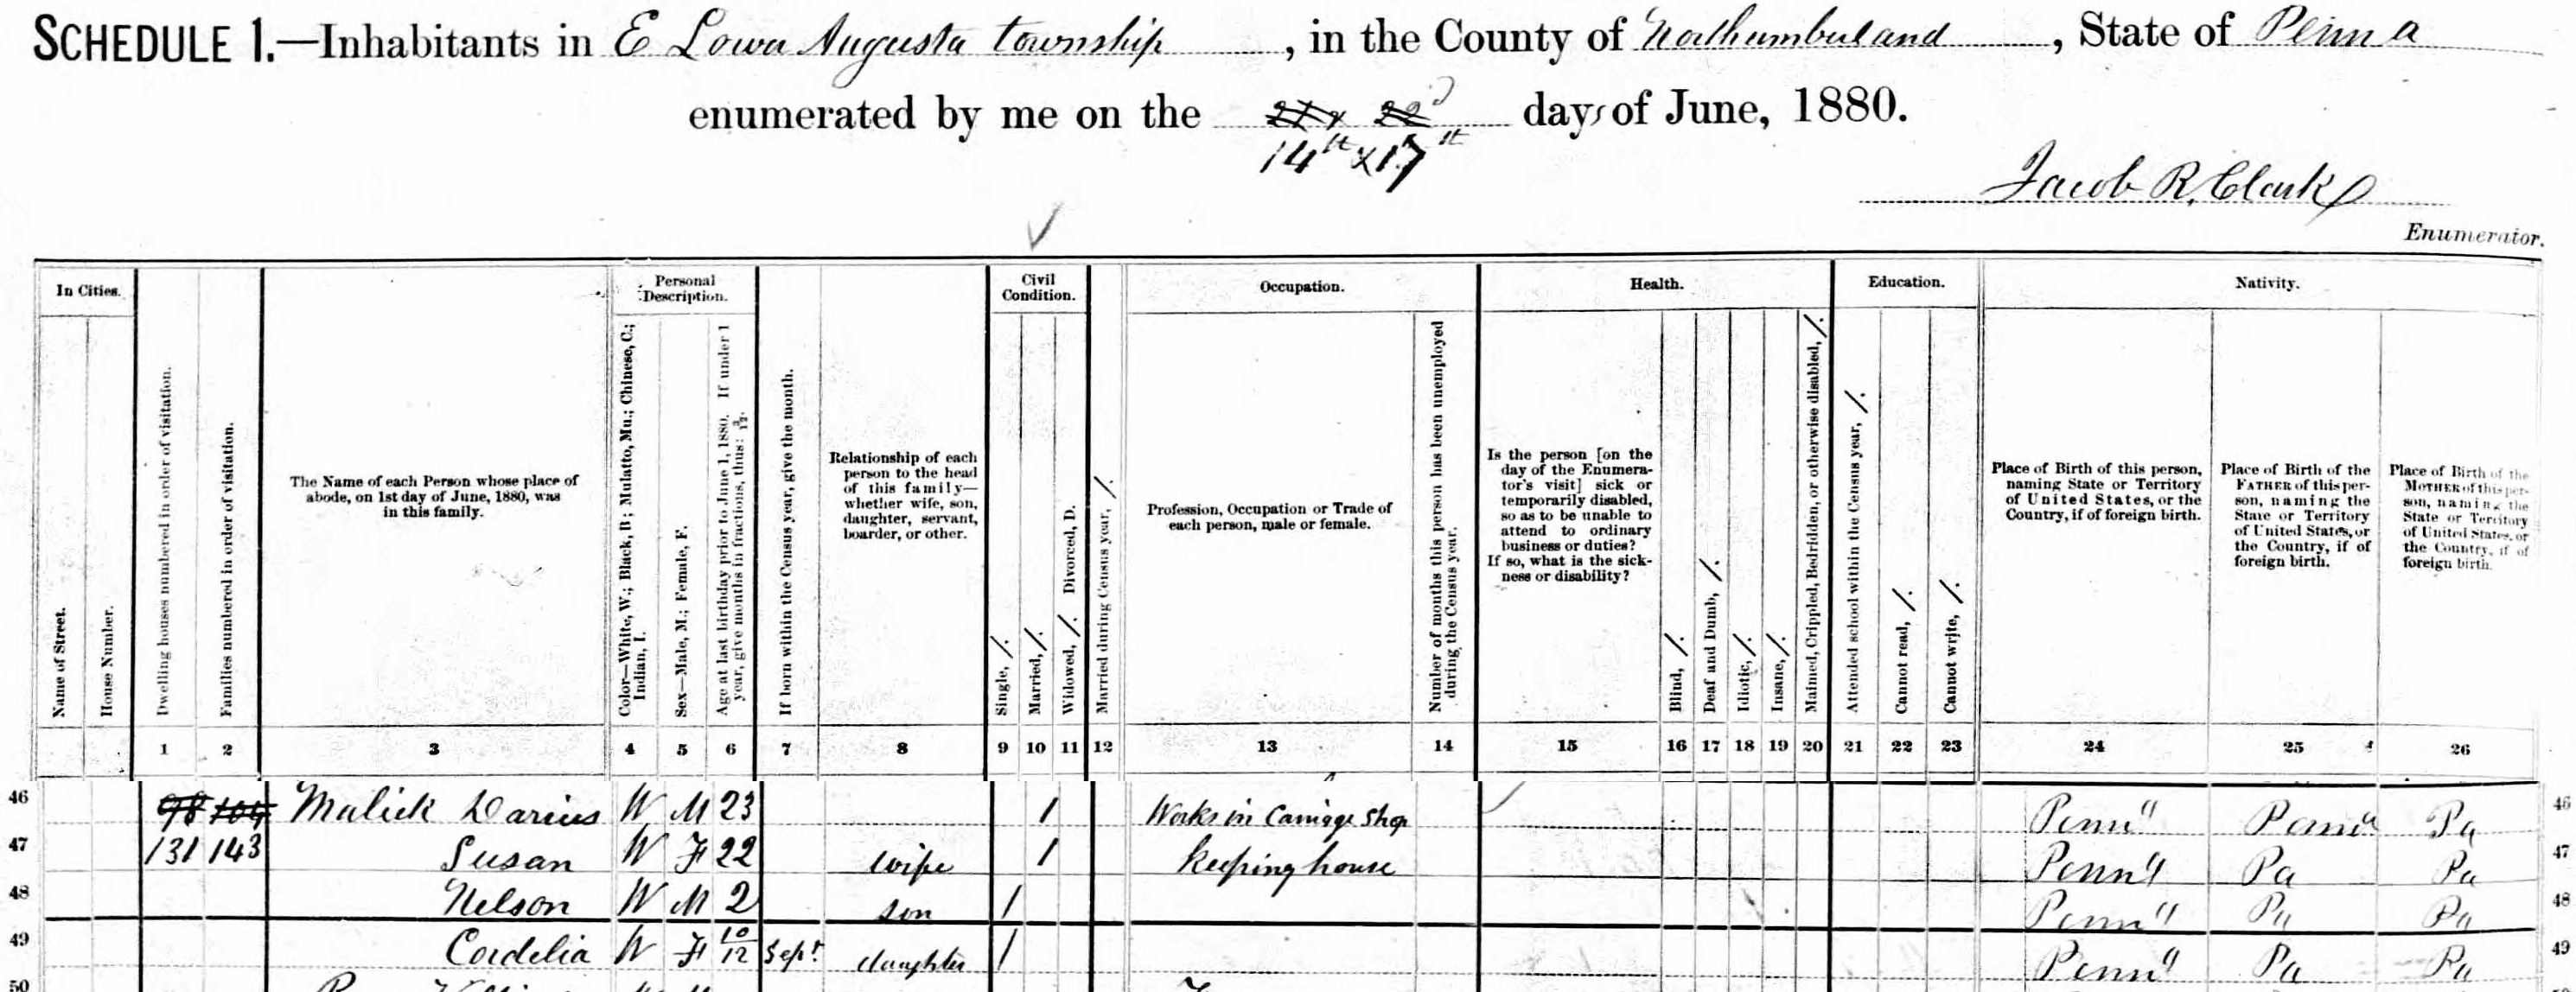 SCHEDULE 1.—Inhabitants in E Lower Augusta township, in the County of Northumberland, State of Penna
enumerated by me on the 21 x 22d days of June, 1880.
14th x 17th
Jacob R. Clark
Enumerator.
In Cities.
Name of Street.
House Number.
Dwelling houses numbered in order of visitation.
Families numbered in order of visitation.
The Name of each Person whose place of
abode, on 1st day of June, 1880, was
in this family.
Personal
Description.
Color—White, W.; Black, B; Mulatto, Mu.; Chinese, C.;
Indian, I.
Sex—Male, M.; Female, F.
Age at last birthday prior to June 1, 1880. If under 1
year, give months in fractions, thus: 3/12.
If born within the Census year, give the month.
Relationship of each
person to the head
of this family—
whether wife, son,
daughter, servant,
boarder, or other.
Civil
Condition.
Single, /.
Married, /.
Widowed, /. Divorced, D.
Married during Census year, /.
Occupation.
Profession, Occupation or Trade of
each person, male or female.
Number of months this person has been unemployed
during the Census year.
Health.
Is the person [on the
day of the Enumera-
tor's visit] sick or
temporarily disabled,
so as to be unable to
attend to ordinary
business or duties?
If so, what is the sick-
ness or disability?
Blind, /.
Deaf and Dumb, /.
Idiotic, /.
Insane, /.
Maimed, Crippled, Bedridden, or otherwise disabled, /.
Education.
Attended school within the Census year, /.
Cannot read, /.
Cannot write, /.
Nativity.
Place of Birth of this person,
naming State or Territory
of United States, or the
Country, if of foreign birth.
Place of Birth of the
FATHER of this per-
son, naming the
State or Territory
of United States, or
the Country, if of
foreign birth.
Place of Birth of the
MOTHER of this per-
son, naming the
State or Territory
of United States, or
the Country, if of
foreign birth.
1 2 3 4 5 6 7 8 9 10 11 12 13 14 15 16 17 18 19 20 21 22 23 24 25 26
46 98 104 Malick Darius W M 23 / Works in Carriage Shop Penna Penna Pa 46
47 131 143 Susan W F 22 wife / keeping house Penna Pa Pa 47
48 Nelson W M 2 son / Penna Pa Pa 48
49 Cordelia W F 10/12 Sept daughter / Penna Pa Pa 49
50